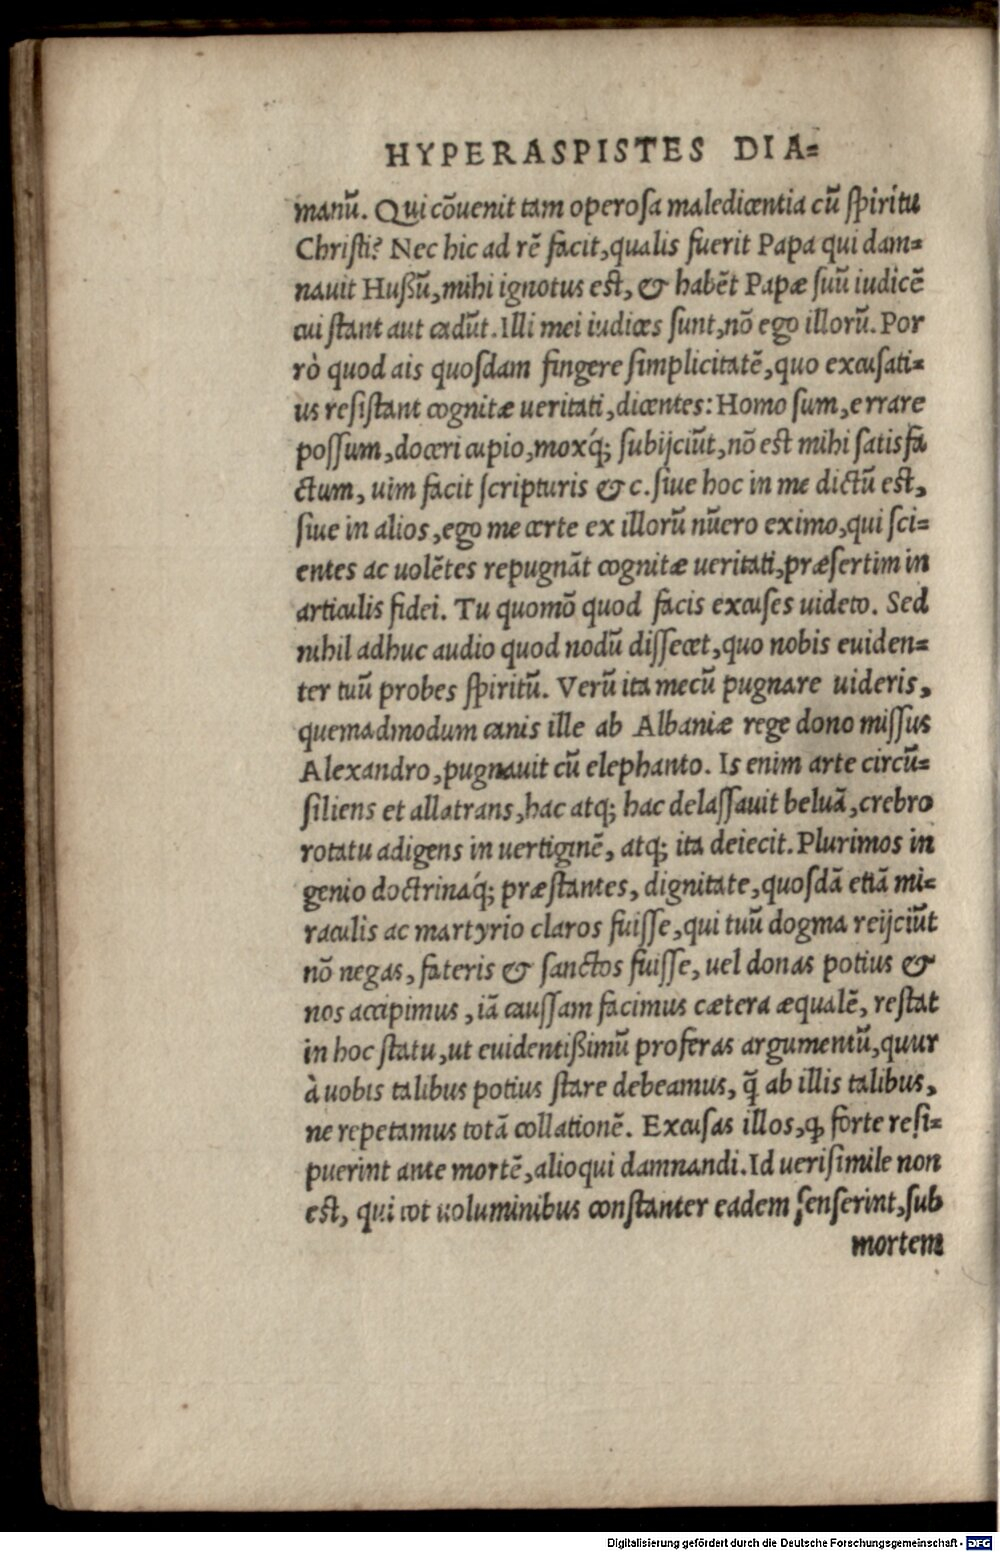 HYPERASPISTES DIA=
manũ. Qui cõuenit tam operosa maledicentia cũ spiritu
Christi? Nec hic ad rẽ facit, qualis fuerit Papa qui dam=
nauit Hußũ, mihi ignotus est, & habẽt Papæ suũ iudicẽ
cui stant aut cadũt. Illi mei iudices sunt, nõ ego illorũ. Por
rò quod ais quosdam fingere simplicitatẽ, quo excusati=
us resistant cognitæ ueritati, dicentes: Homo sum, errare
possum, doceri cupio, moxq́; subijciũt, nõ est mihi satisfa
ctum, uim facit scripturis &c. siue hoc in me dictũ est,
siue in alios, ego me certe ex illorũ nũero eximo, qui sci=
entes ac uolẽtes repugnãt cognitæ ueritati, præsertim in
articulis fidei. Tu quomõ quod facis excuses uideto. Sed
nihil adhuc audio quod nodũ dissecet, quo nobis euiden=
ter tuũ probes spiritũ. Verũ ita mecũ pugnare uideris,
quemadmodum canis ille ab Albaniæ rege dono missus
Alexandro, pugnauit cũ elephanto. Is enim arte circũ=
siliens et allatrans, hac atq; hac delassauit beluã, crebro
rotatu adigens in uertiginẽ, atq; ita deiecit. Plurimos in
genio doctrinaq́; præstantes, dignitate, quosdã etiã mi=
raculis ac martyrio claros fuisse, qui tuũ dogma reijciũt
nõ negas, fateris & sanctos fuisse, uel donas potius &
nos accipimus, iã caussam facimus cætera æqualẽ, restat
in hoc statu, ut euidentißimũ proferas argumentũ, quur
à uobis talibus potius stare debeamus, q̃ ab illis talibus,
ne repetamus totã collationẽ. Excusas illos, ꝙ forte resi=
puerint ante mortẽ, alioqui damnandi. Id uerisimile non
est, qui tot uoluminibus constanter eadem senserint, sub
mortem
Digitalisierung gefördert durch die Deutsche Forschungsgemeinschaft - DFG